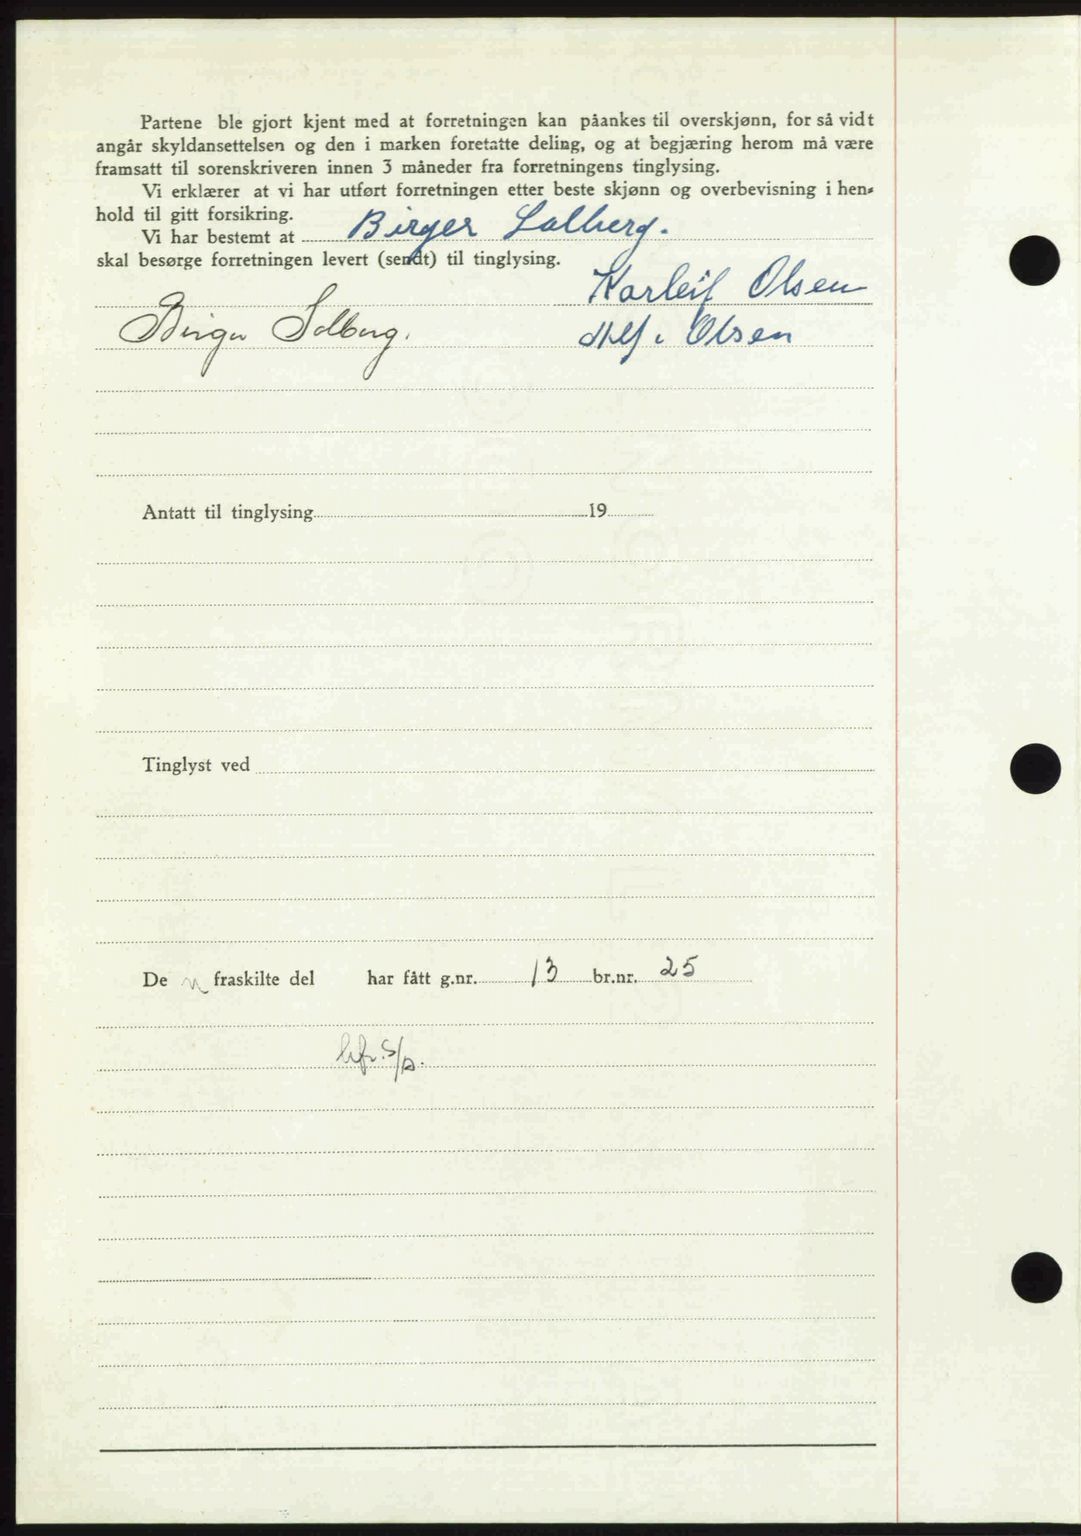 Partene ble gjort kjent med at forretningen kan påankes til overskjønn, for så vidt
angår skyldansettelsen og den i marken foretatte deling, og at begjæring herom må være
framsatt til sorenskriveren innen 3 måneder fra forretningens tinglysing.
Vi erklærer at vi har utført forretningen etter beste skjønn og overbevisning i hen-
hold til gitt forsikring.
Vi har bestemt at Birger Solberg.
skal besørge forretningen levert (sendt) til tinglysing.
Karleif Olsen
Birger Solberg. Olsen
Antatt til tinglysing 19
Tinglyst ved
De n fraskilte del har fått g.nr. 13 br.nr. 25